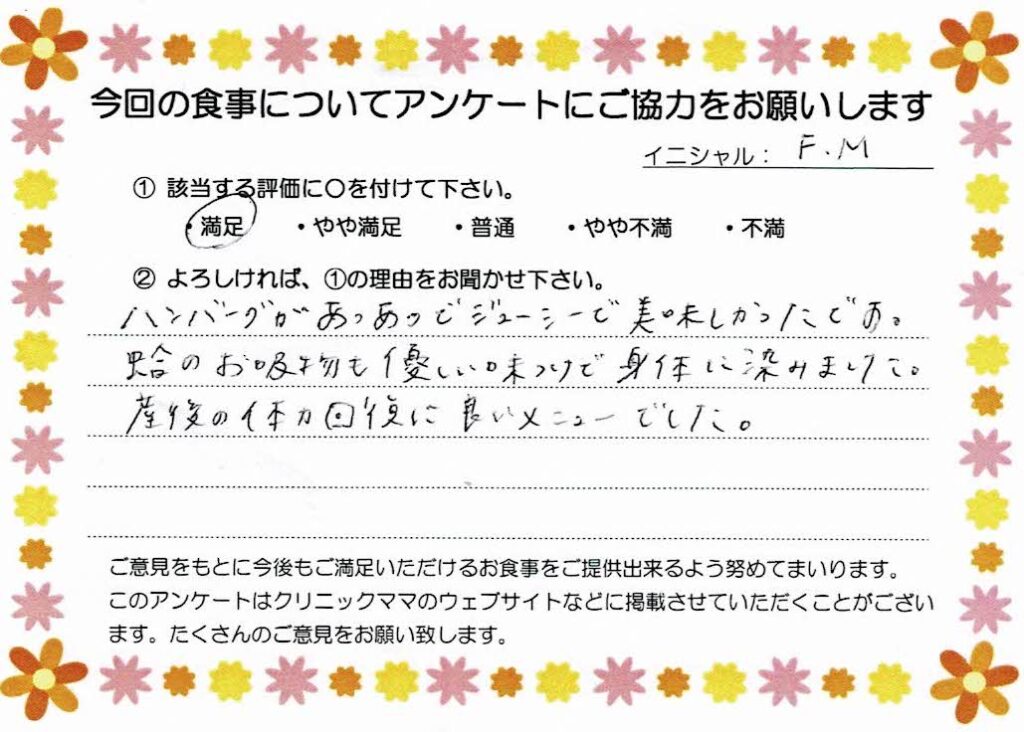 今回の食事についてアンケートにご協力をお願いします
イニシャル： F.M
① 該当する評価に〇を付けて下さい。
・満足 ・やや満足 ・普通 ・やや不満 ・不満
② よろしければ、①の理由をお聞かせ下さい。
ハンバーグがあつあつでジューシーで美味しかったです。
蛤のお吸物も優しい味つけで身体に染みました。
産後の体力回復に良いメニューでした。
ご意見をもとに今後もご満足いただけるお食事をご提供出来るよう努めてまいります。
このアンケートはクリニックママのウェブサイトなどに掲載させていただくことがござい
ます。たくさんのご意見をお願い致します。